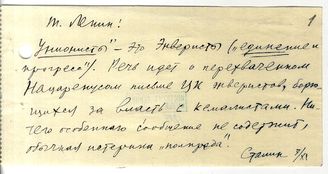 т. Ленин!
1
"Унионисты" – это Энверисты ("единение и
прогресс"). Речь идет о перехваченном
Нацаренусом письме ЦК энверистов, борю-
щихся за власть с кемалистами. Ни-
чего особенного сообщение не содержит,
обычная истерика "полпреда".
Сталин